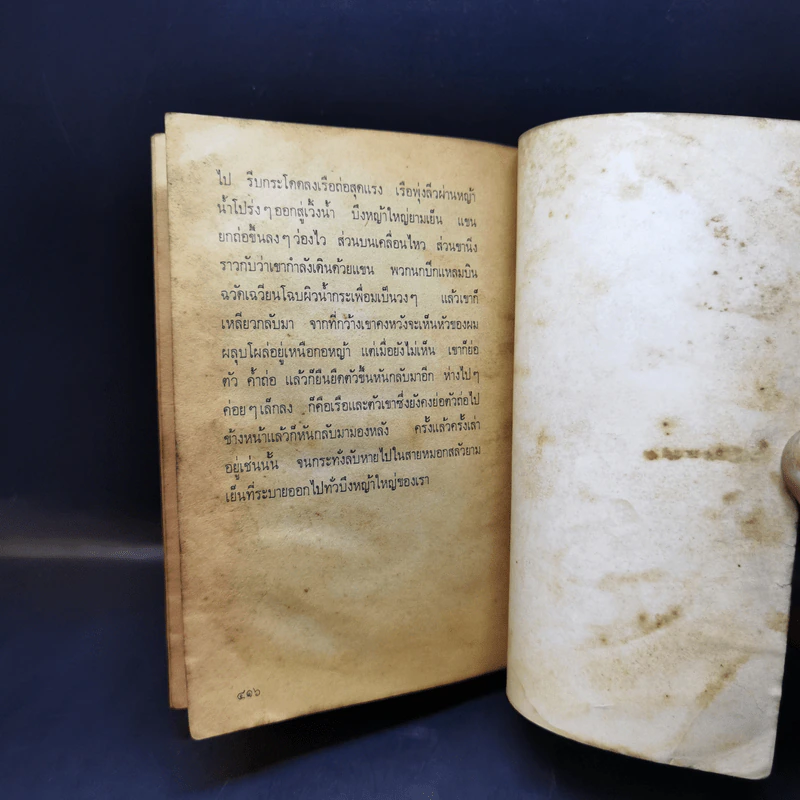 ไป รีบกระโดดลงเรือถ่อสุดแรง เรือพุ่งลิ่วผ่านหญ้า
น้ำโปร่งๆ ออกสู่เวิ้งน้ำ บึงหญ้าใหญ่ยามเย็น แขน
ยกถ่อขึ้นลงๆ ว่องไว ส่วนบนเคลื่อนไหว ส่วนขานิ่ง
ราวกับว่าเขากำลังเดินด้วยแขน พวกนกปีกแหลมบิน
ฉวัดเฉวียนโฉบผิวน้ำกระเพื่อมเป็นวงๆ แล้วเขาก็
เหลียวกลับมา จากที่กว้างเขาคงหวังจะเห็นหัวของผม
ผลุบโผล่อยู่เหนือกอหญ้า แต่เมื่อยังไม่เห็น เขาก็ย่อ
ตัว ค้ำถ่อ แล้วก็ยืนยืดตัวขึ้นหันกลับมาอีก ห่างไปๆ
ค่อยๆ เล็กลง ก็คือเรือและตัวเขาซึ่งยังคงย่อตัวถ่อไป
ข้างหน้าแล้วก็หันกลับมามองหลัง ครั้งแล้วครั้งเล่า
อยู่เช่นนั้น จนกระทั่งลับหายไปในสายหมอกสลัวยาม
เย็นที่ระบายออกไปทั่วบึงหญ้าใหญ่ของเรา
๔๑๖